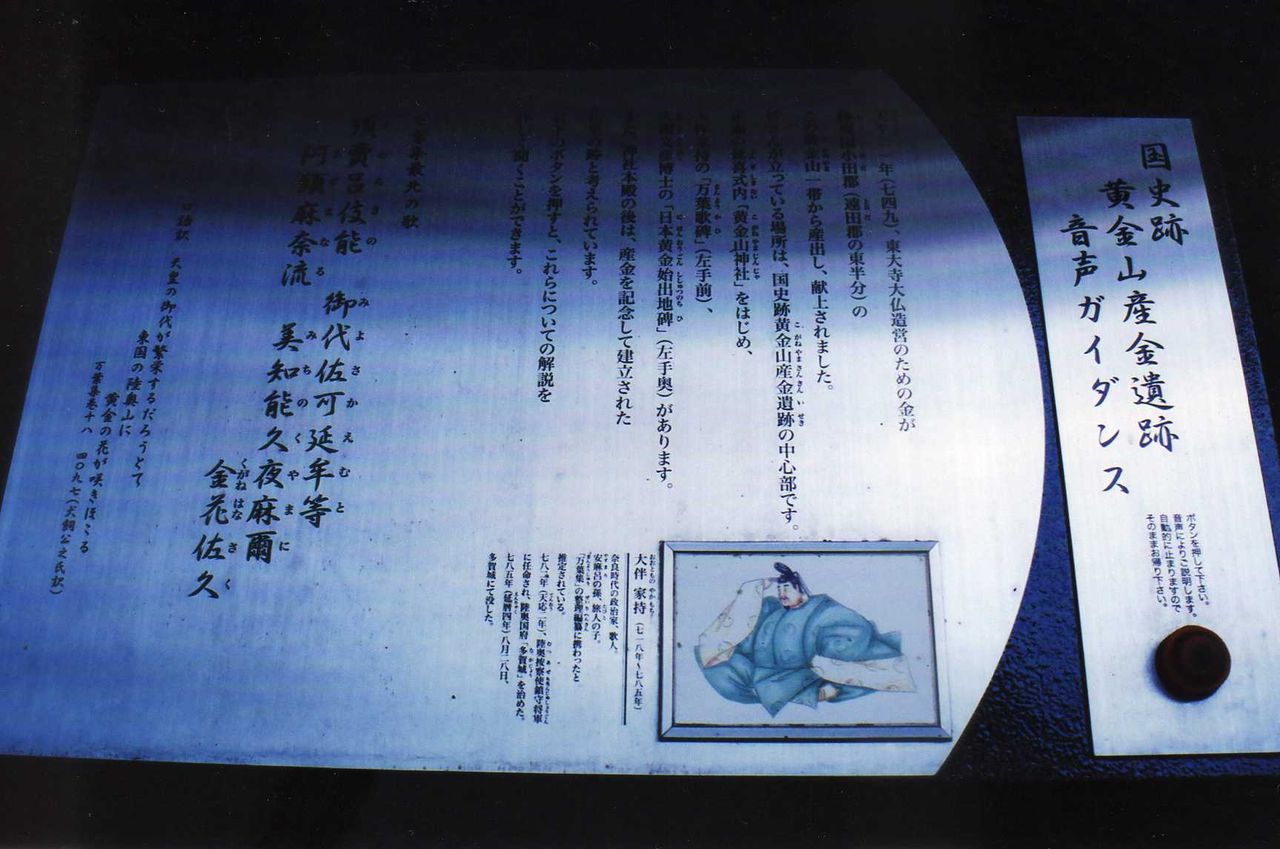 国史跡
黄金山産金遺跡
音声ガイダンス
ボタンを押して下さい。
音声によりご説明します。
自動的に止まりますので
そのままお帰り下さい。
年（七四九）、東大寺大仏造営のための金が
小田郡（遠田郡の東半分）の
山一帯から産出し、献上されました。
立っている場所は、国史跡黄金山産金遺跡の中心部です。
式内「黄金山神社」をはじめ、
の「万葉歌碑」（左手前）、
博士の「日本黄金始出地碑」（左手奥）があります。
神社本殿の後は、産金を記念して建立された
跡と考えられています。
のボタンを押すと、これらについての解説を
聞くことができます。
最北の歌
須賣呂伎能 御代佐可延牟等
阿頭麻奈流 美知能久夜麻爾
金花佐久
口語訳 天皇の御代が繁栄するだろうとて
東国の陸奥山に
黄金の花が咲きほこる
万葉集巻十八 四〇九七（犬飼公之氏訳）
大伴 家持（七一八年～七八五年）
奈良時代の政治家、歌人。
安麻呂の孫、旅人の子。
「万葉集」の整理編纂に携わったと
推定されている。
七八二年（天応二年）、陸奥按察使鎮守将軍
に任命され、陸奥国府「多賀城」を治めた。
七八五年（延暦四年）八月二八日、
多賀城にて没した。